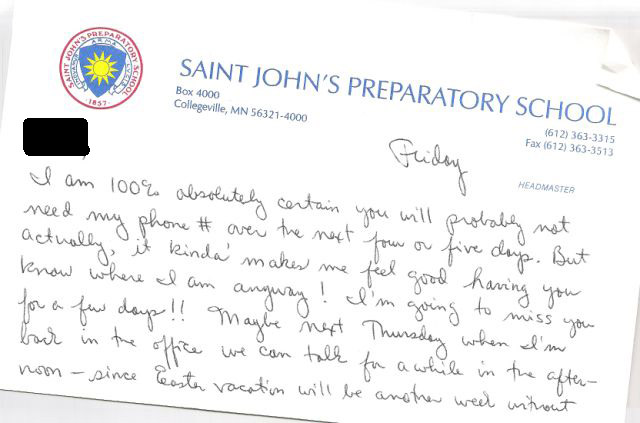 SAINT JOHN'S PREPARATORY SCHOOL
1857
SAINT JOHN'S PREPARATORY SCHOOL
Box 4000
Collegeville, MN 56321-4000
(612) 363-3315
Fax (612) 363-3513
HEADMASTER
Friday
I am 100% absolutely certain you will probably not
need my phone # over the next four or five days. But
actually, it kinda' makes me feel good having you
know where I am anyway! I'm going to miss you
for a few days!! Maybe next Thursday when I'm
back in the office we can talk for a while in the after-
noon - since Easter vacation will be another week without